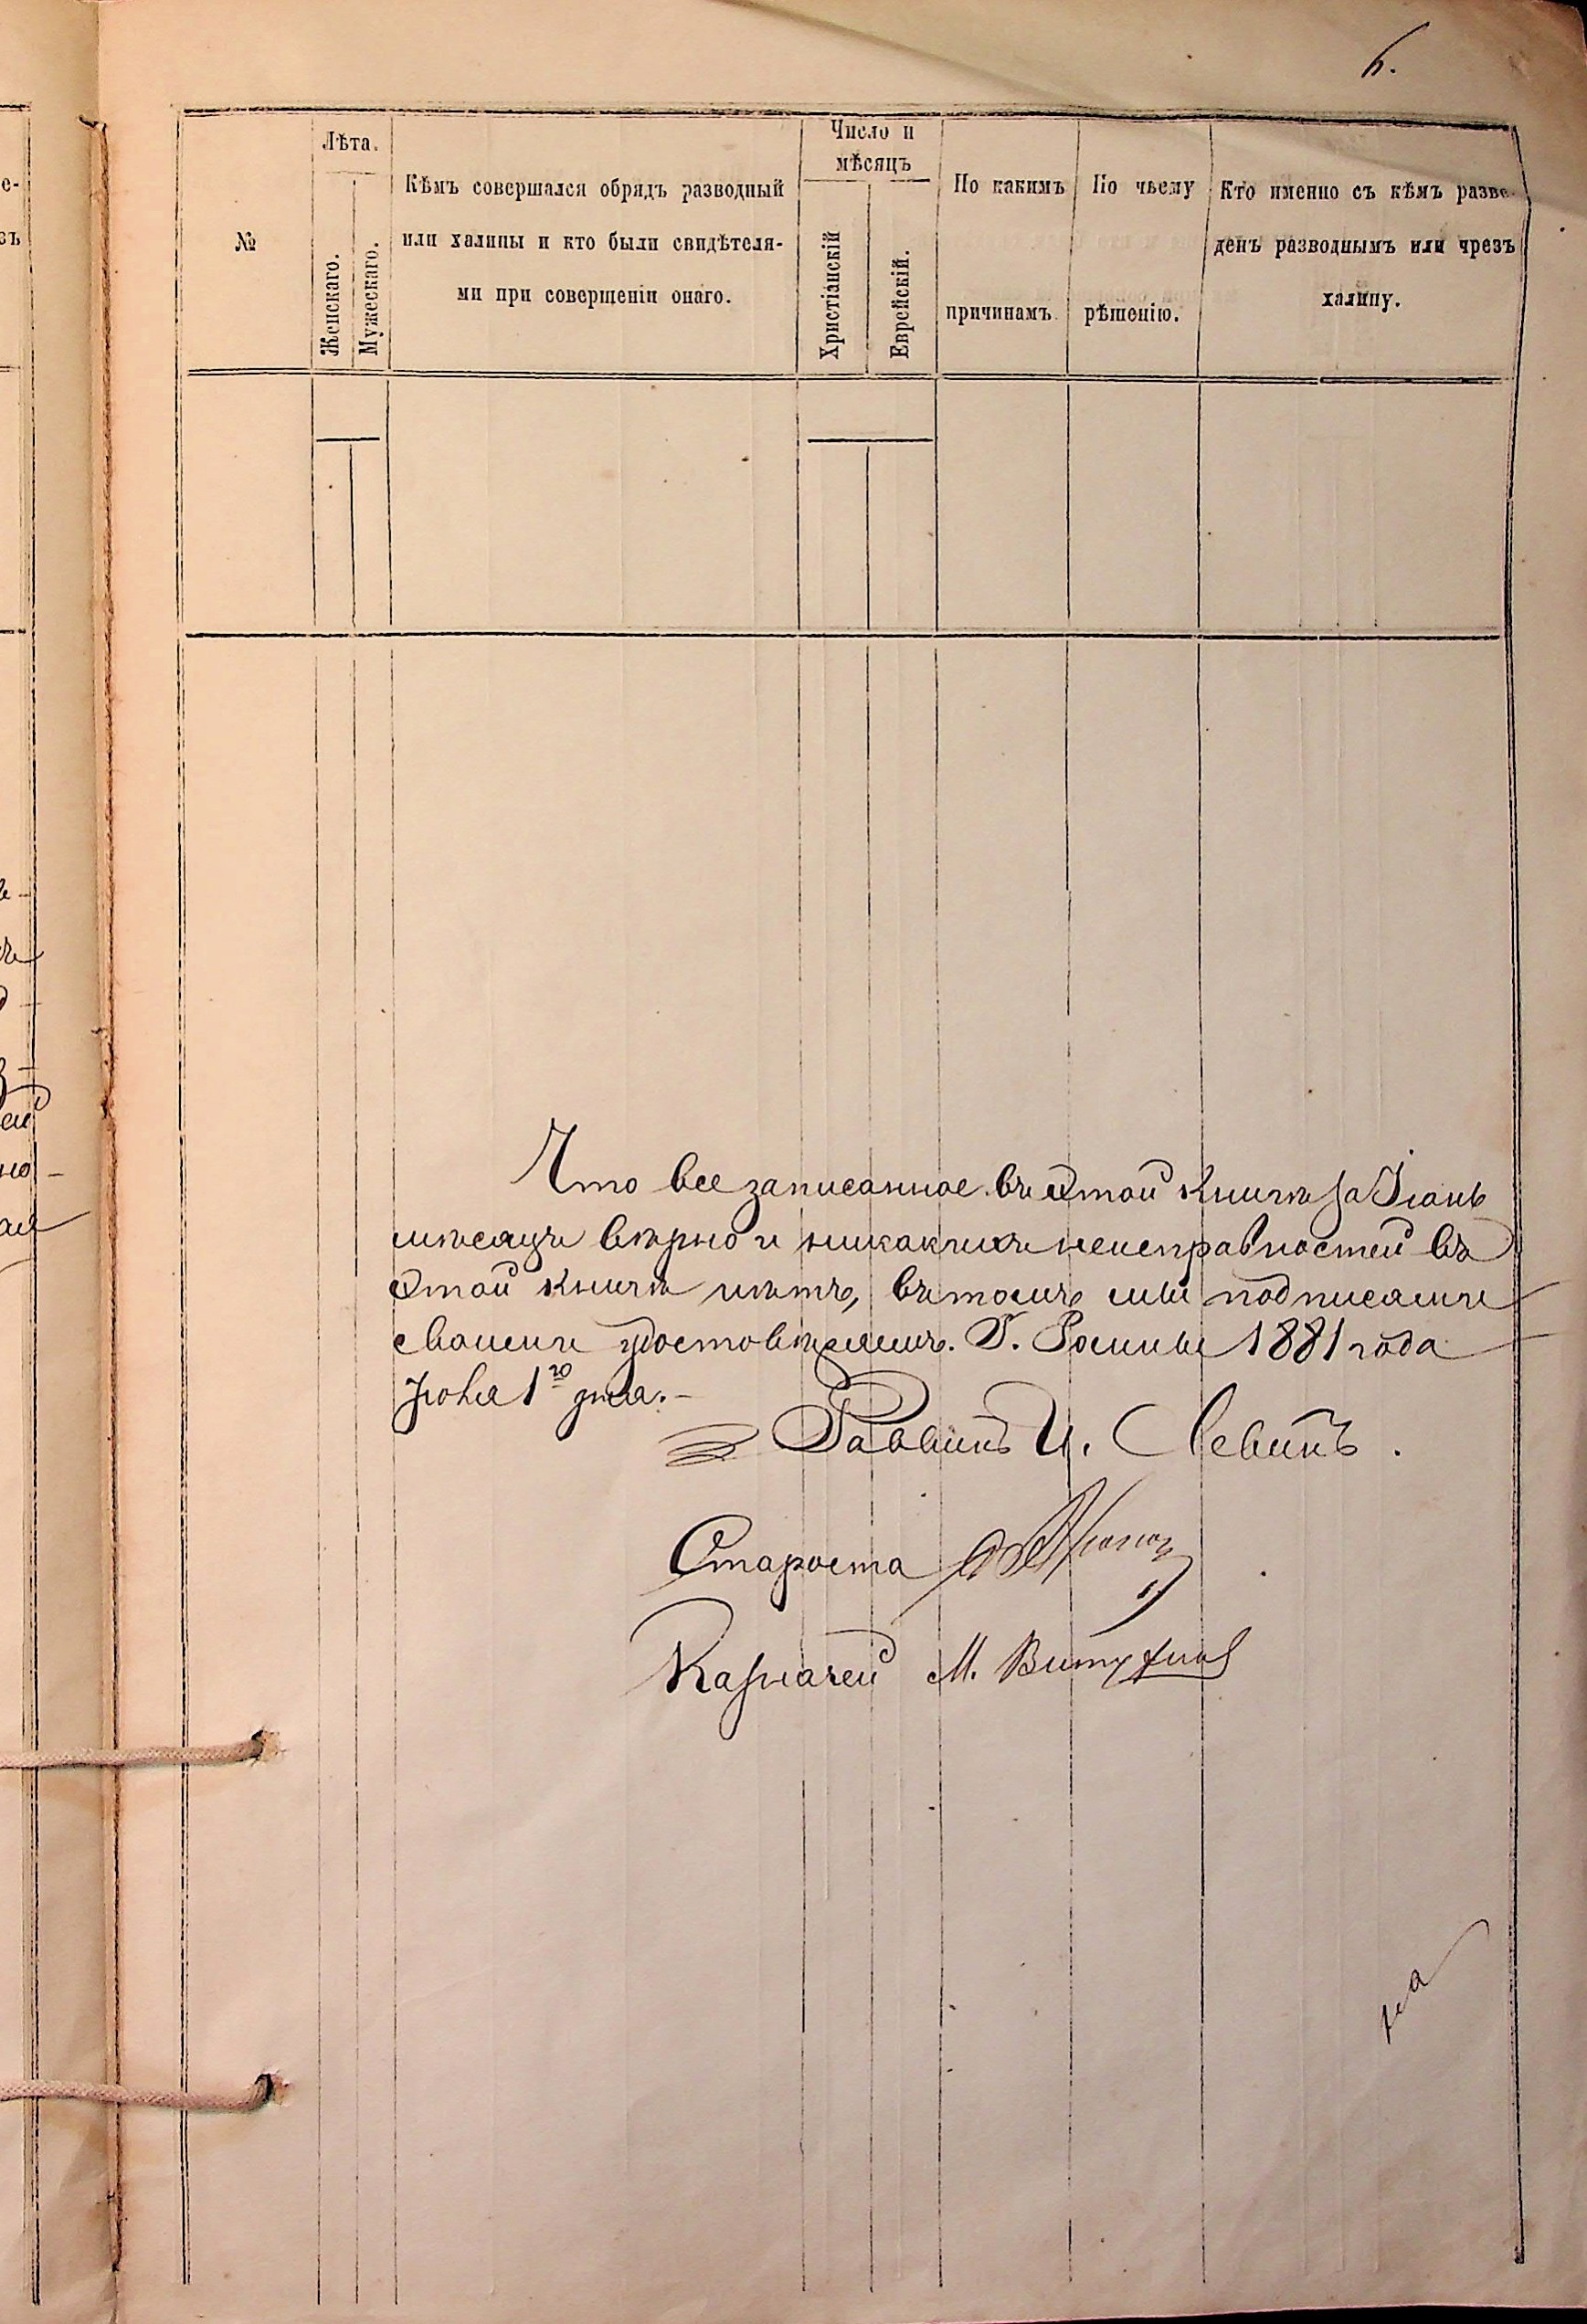 6.
Лѣта.
Число и
мѣсяцъ
№
Женскаго.
Мужескаго.
Кѣмъ совершался обрядъ разводный
или халицы и кто были свидѣтеля-
ми при совершеніи онаго.
Христіанскій
Еврейскій.
По какимъ
причинамъ.
По чьему
рѣшенію.
Кто именно съ кѣмъ разве-
денъ разводнымъ или чрезъ
халицу.
Что все записанное въ этой книгѣ за
мѣсяцъ вѣрно и никакихъ неисправностей въ
этой книгѣ нѣтъ, въ томъ мы подписями
своими удостовѣряемъ. Г. Ромны 1881 года
1го дня.–
Раввинъ И. Левинъ.
Староста
Казначей М.